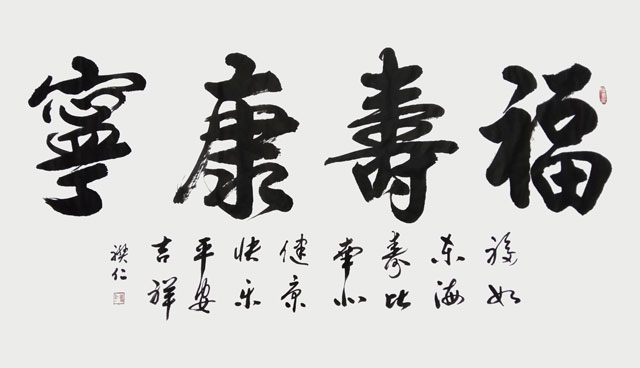 福壽康寧
福如
东海
寿比
南山
健康
快乐
平安
吉祥
仁